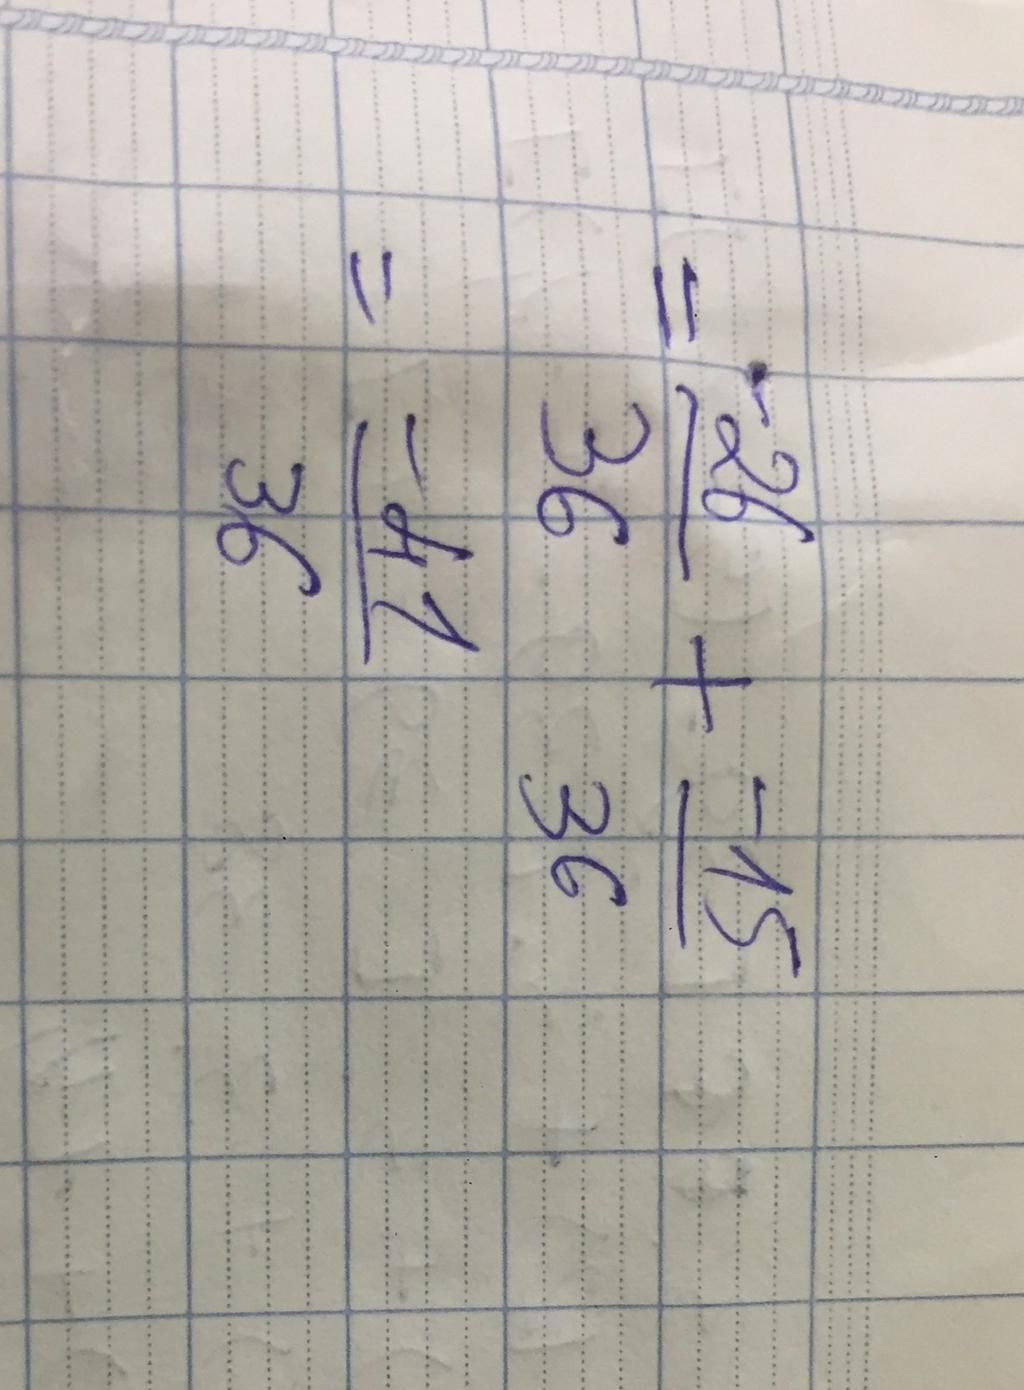 = -26/36 + -15/36
= -41/36